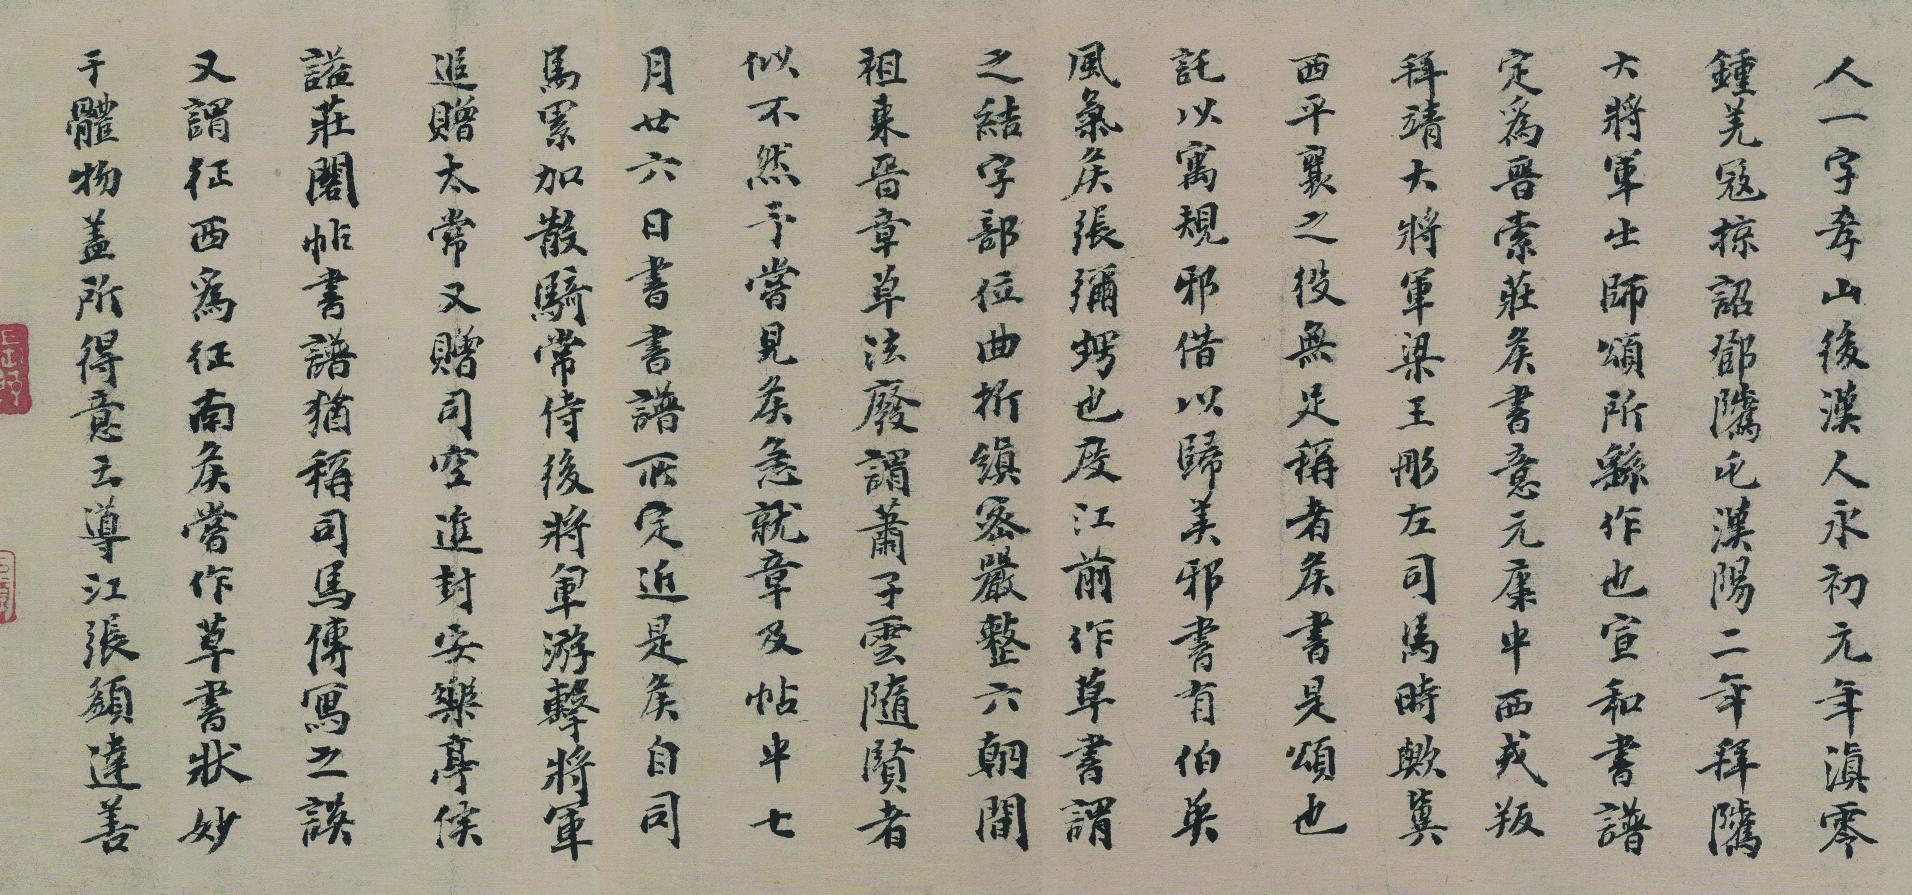 人一字孝山後漢人永初元年滇零
鍾羌寇掠詔鄧隲屯漢陽二年拜隲
大將軍出師頌所繇作也宣和書譜
定為晉索莊矦書意元康中西戎叛
拜靖大將軍梁王肜左司馬時歟冀
西平襄之役無足稱者矦書是頌也
託以寓規邪借以歸美邪書有伯英
風氣矦張彌愕也度江前作草書謂
之結字部位曲折縝密嚴整六朝間
祖東晉章草法廢謂蕭子雲隨賢者
似不然予嘗見矦急就章及帖中七
月廿六日書書譜所定近是矦自司
馬累加散騎常侍後將軍游擊將軍
追贈太常又贈司空進封安樂亭侯
謚莊閣帖書譜猶稱司馬傳寫之誤
又謂征西為征南矦嘗作草書狀妙
于體物蓋所得意云導江張䪼達善